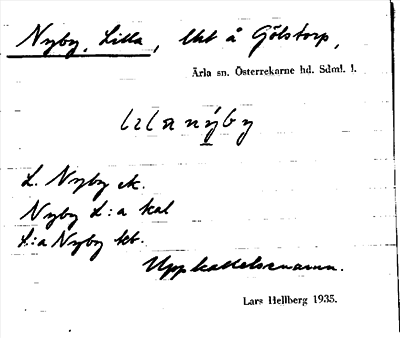 Nyby, Lilla, lht å Gölstorp,
Ärla sn. Österrekarne hd. Sdml. l.
lılanýby
L. Nyby ek.
Nyby L:a kal
L:a Nyby kb.
Uppkallelsenamn.
Lars Hellberg 1935.